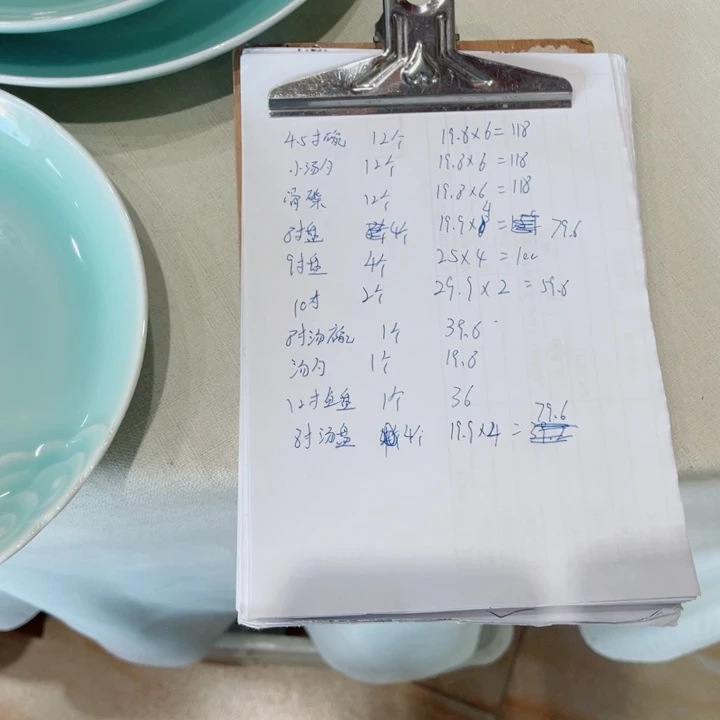 4.5寸碗 12个 19.8×6=118
小汤勺 12个 19.8×6=118
骨碟 12个 19.8×6=118
8寸盘 4个 19.9×4= 79.6
9寸盘 4个 25×4=100
10寸 2个 29.9×2=59.8
8寸汤碗 1个 39.6
汤勺 1个 19.8
12寸鱼盘 1个 36
8寸汤盘 4个 19.9×4= 79.6